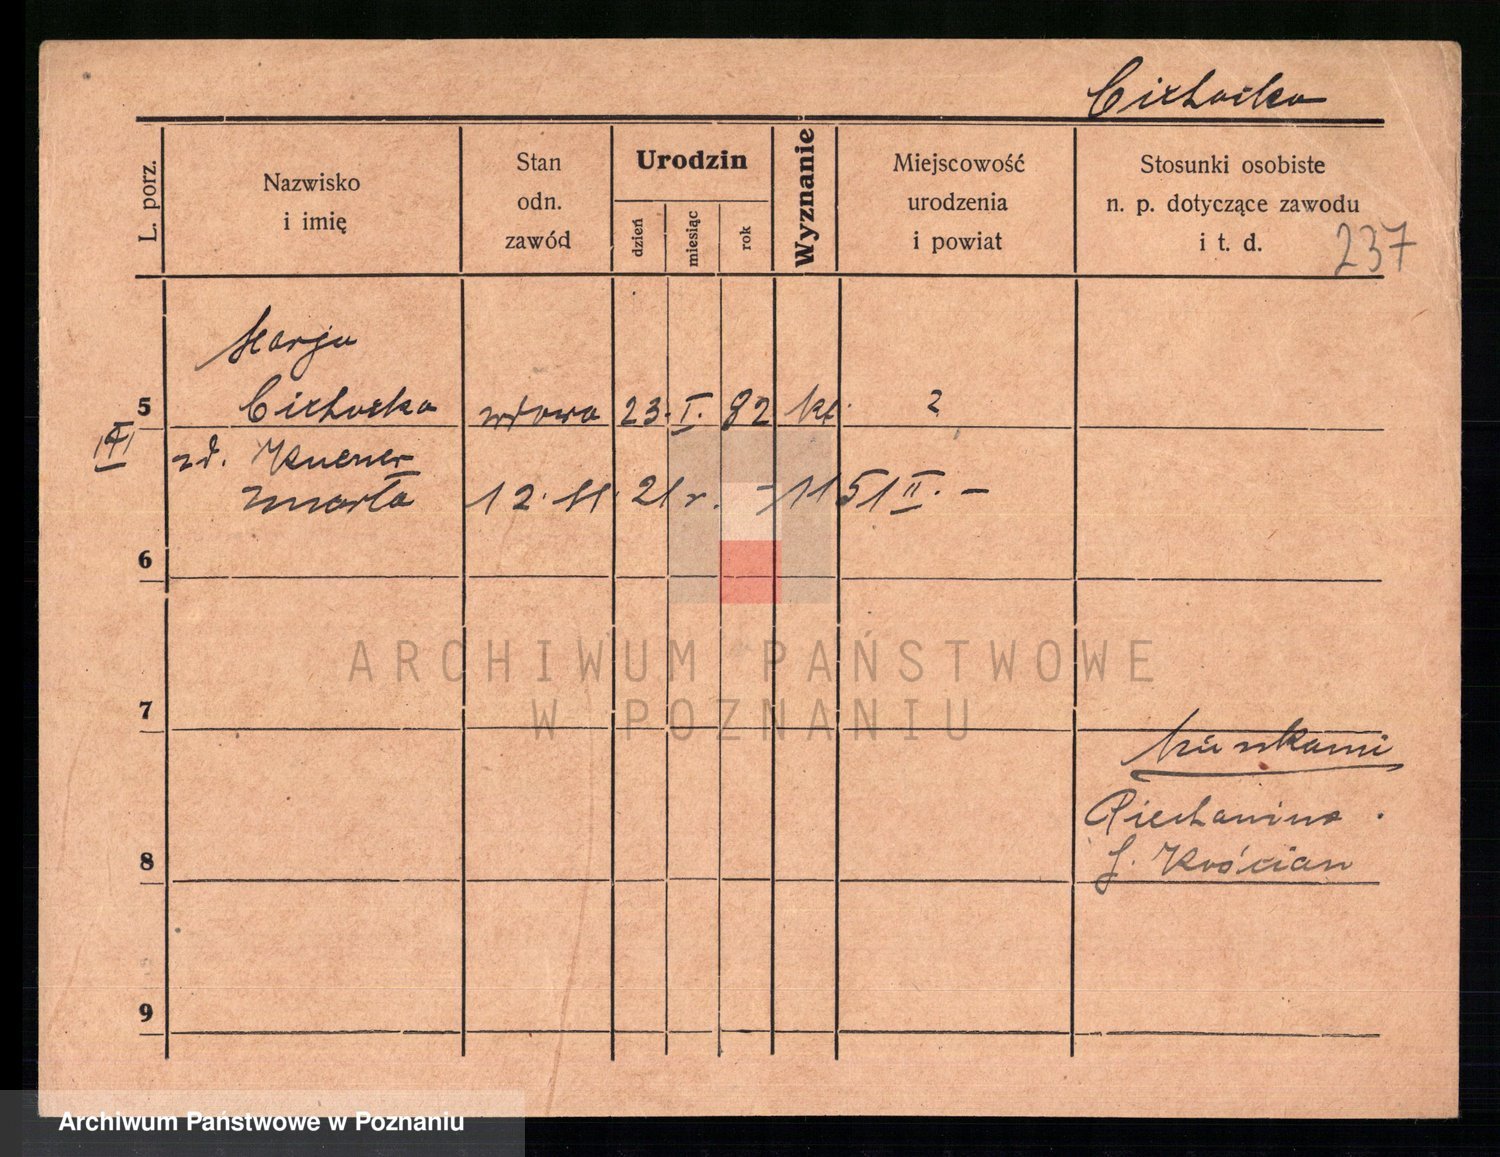 Cichocka
L. porz.
Nazwisko
i imię
Stan
odn.
zawód
Urodzin
dzień
miesiąc
rok
Wyznanie
Miejscowość
urodzenia
i powiat
Stosunki osobiste
n. p. dotyczące zawodu
i t. d.
237
Marja
5 Cichocka wdowa 23. I. 82 kt. ?
zmarła 12. 11. 21 r.
6
ARCHIWUM PAŃSTWOWE
W POZNANIU
7
Piechanina.
8
Kościan
9
Archiwum Państwowe w Poznaniu